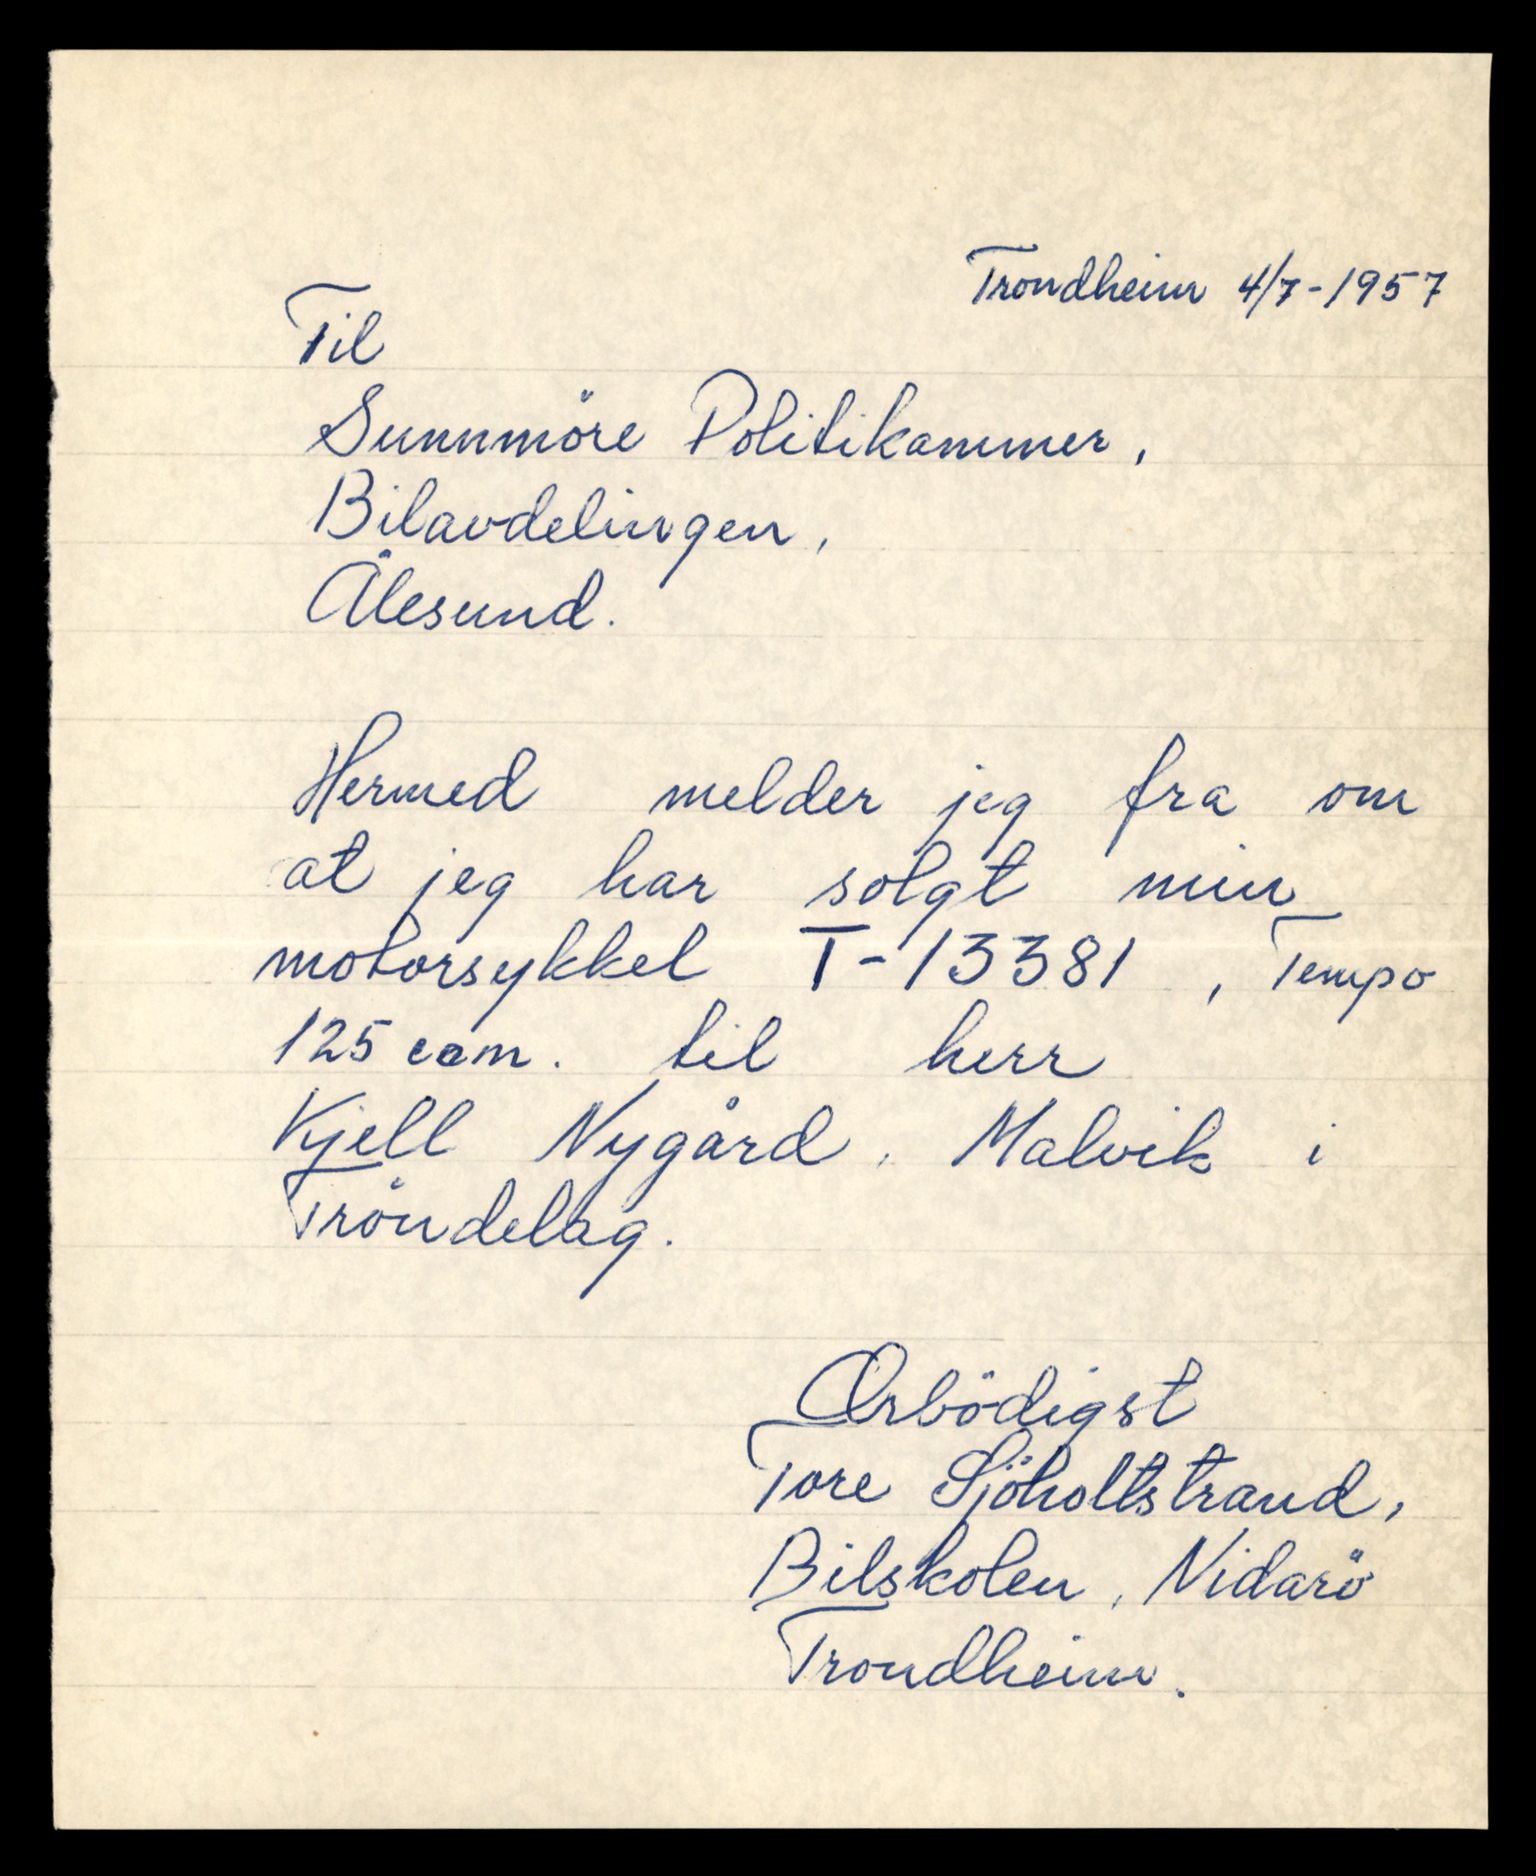 Trondheim 4/7-1957
Til
Sunnmöre Politikammer,
Bilavdelingen,
Ålesund.
Hermed melder jeg fra om
at jeg har solgt min
motorsykkel T-13381, Tempo
125 ccm. til herr
Kjell Nygård, Malvik i
Tröndelag.
Ærbödigst
Tore Sjöholtstrand,
Bilskolen, Nidarö
Trondheim.